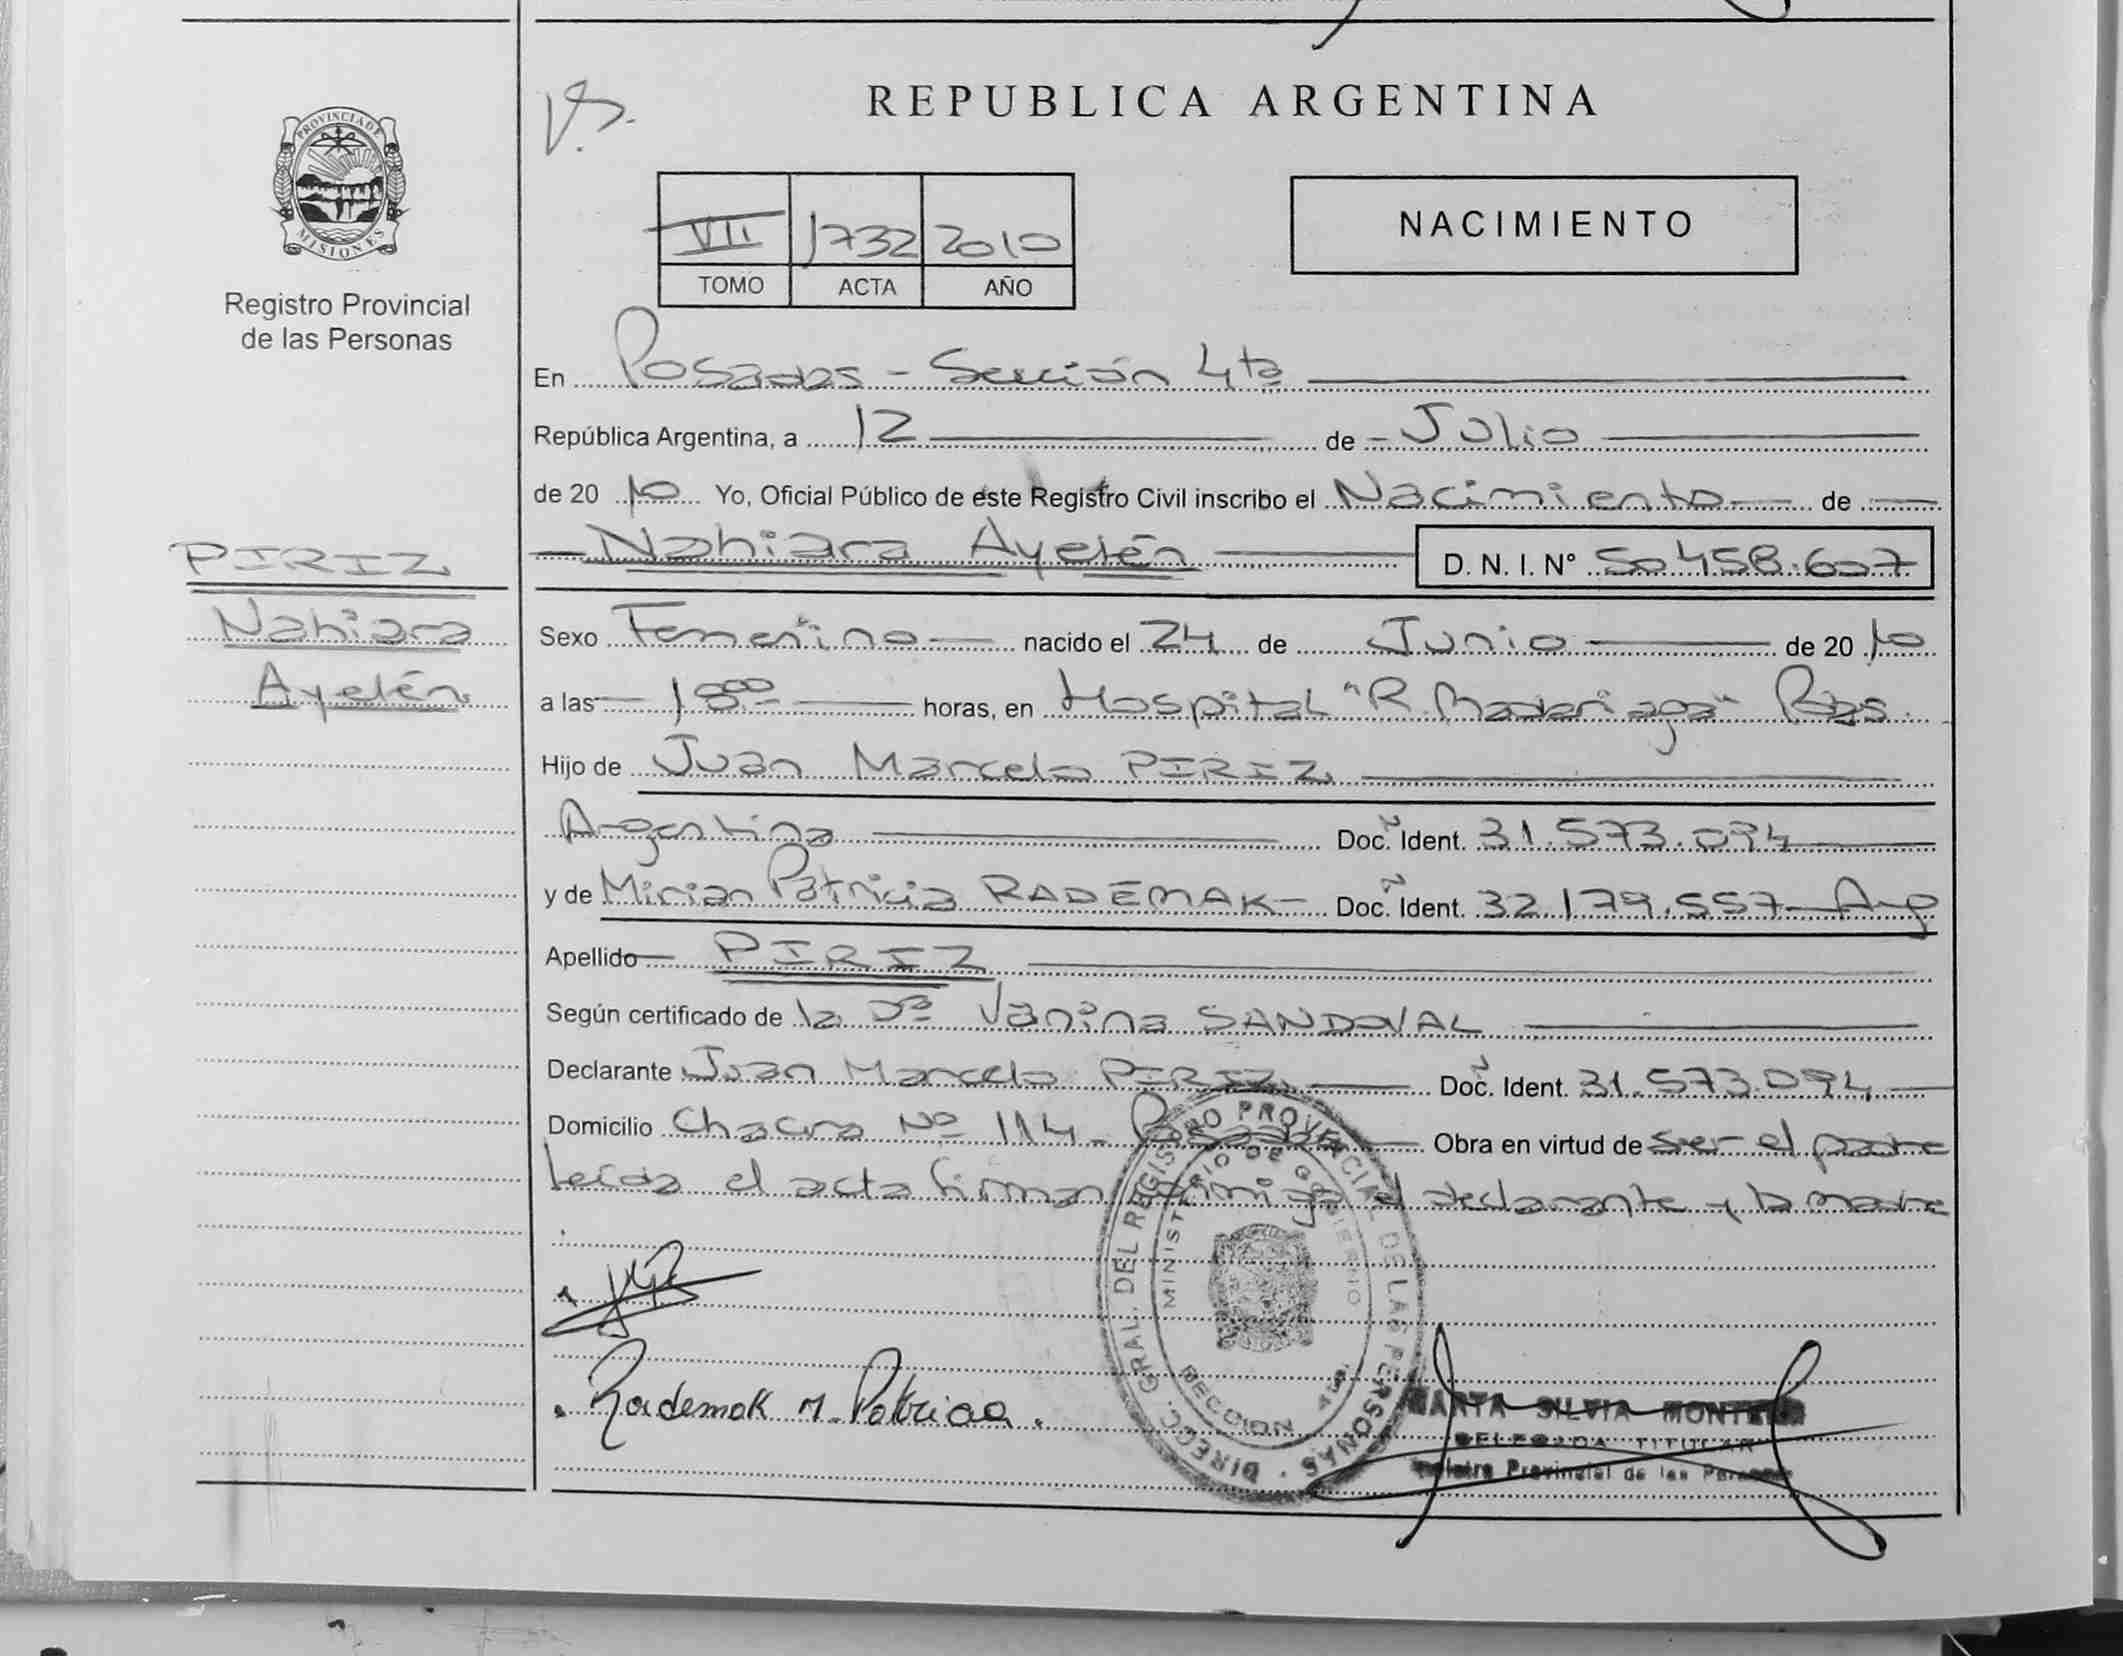 REPUBLICA ARGENTINA
PROVINCIA DE MISIONES
Registro Provincial
de las Personas
VII 1732 2010
TOMO ACTA AÑO
NACIMIENTO
En Posadas - Sección 4ta
República Argentina, a 12 de Julio
de 2010 Yo, Oficial Público de este Registro Civil inscribo el Nacimiento de
Nahiara Ayelén D. N. I. Nº 50458.607
PIRIZ
Nahiara
Ayelén
Sexo Femenino nacido el 24 de Junio de 2010
a las 18:00 horas, en Hospital "R. Madariaga" Pdas.
Hijo de Juan Marcelo PIRIZ
Argentina Doc. Ident. 31.573.094
y de Mirian Patricia RADEMAK Doc. Ident. 32.179.557 Arg
Apellido PIRIZ
Según certificado de la Dra Vanina SANDOVAL
Declarante Juan Marcelo PIRIZ Doc. Ident. 31.573.094
Domicilio Chacra Nº 114 - Posadas Obra en virtud de ser el padre
leída el acta firman conmigo el declarante y la madre
Rademak M. Patricia
DIRECC. GRAL. DEL REGISTRO PROVINCIAL DE LAS PERSONAS
MINISTERIO DE GOBIERNO
SECCION 4ta
MARTA SILVIA
DELEGADA TITULAR
Registro Provincial de las Personas